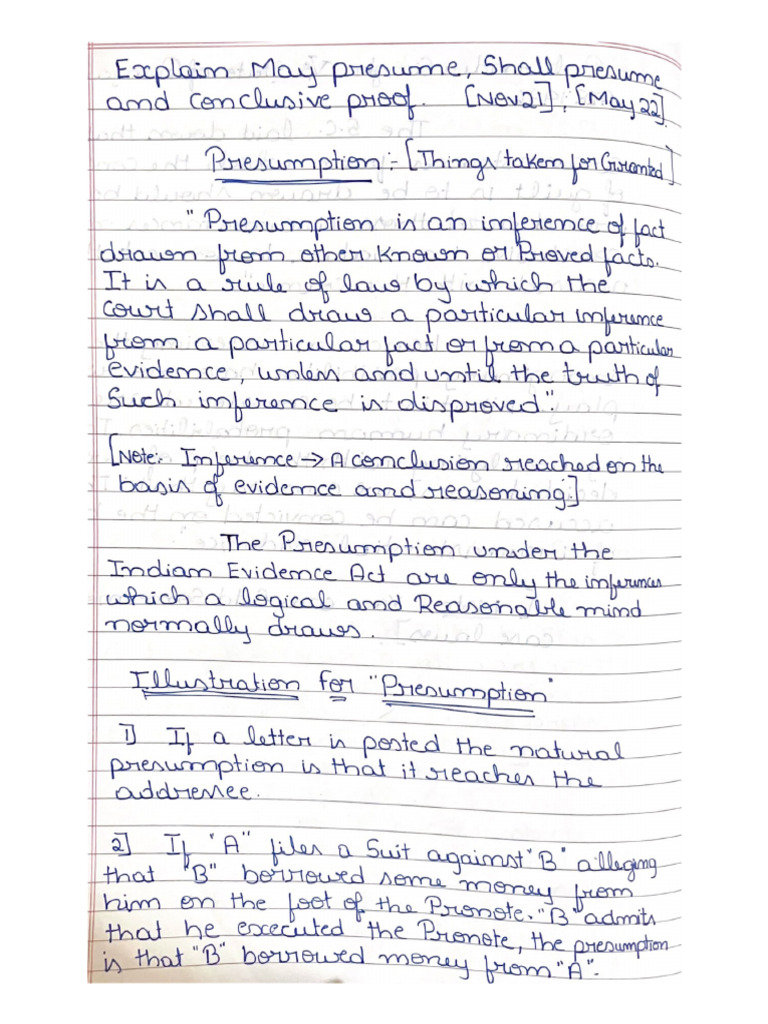 Explain May presume, Shall presume
and Conclusive proof. [Nov21], [May22].
Presumption:- [Things taken for Granted]
"Presumption is an inference of fact
drawn from other known or Proved facts.
It is a rule of law by which the
Court shall draw a particular inference
from a particular fact or from a particular
evidence, unless and until the truth of
Such inference is disproved".
[Note:- Inference → A conclusion reached on the
basis of evidence and reasoning.]
The Presumption under the
Indian Evidence Act are only the inferences
which a logical and Reasonable mind
normally draws.
Illustration for "Presumption"
1] If a letter is posted the natural
presumption is that it reaches the
addressee.
2] If "A" files a Suit against "B" alleging
that "B" borrowed some money from
him on the foot of the Pronote. "B" admits
that he executed the Pronote, the presumption
is that "B" borrowed money from "A".